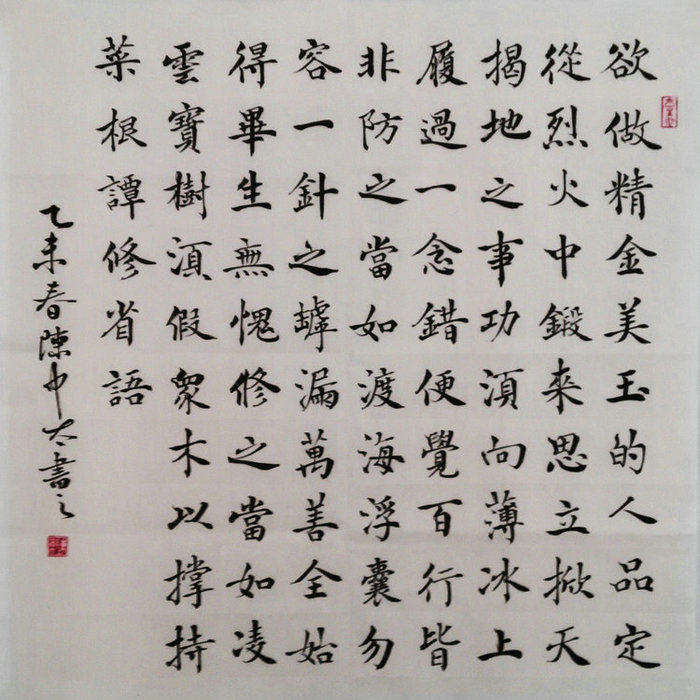 欲做精金美玉的人品定
從烈火中鍛来思立掀天
揭地之事功湏向薄冰上
履過一念錯便覺百行皆
非防之當如渡海浮囊勿
容一針之罅漏萬善全始
得畢生無愧修之當如凌
雲寶樹湏假衆木以撐持
菜根譚修省語
乙未春陳中太書之